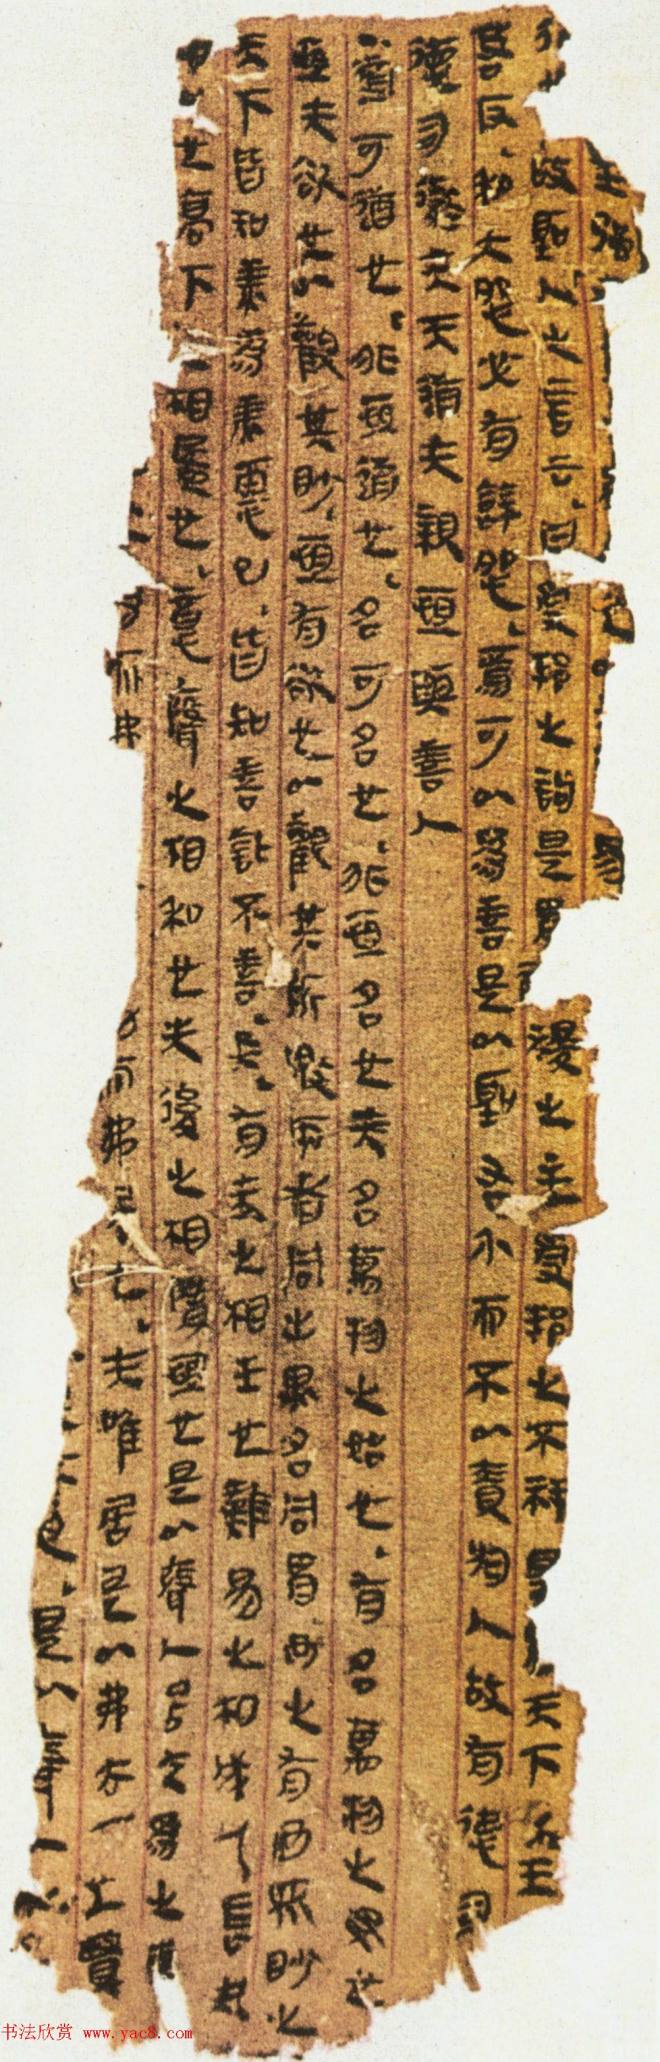 強
行也故聖人之言云曰受邦之詢是胃稷之主受邦之不祥是胃天下之王
若反和大怨必有餘怨焉可以為善是以聖右介而不以責於人故有德司
德司徹夫天道无親恒與善人
·道可道也非恒道也名可名也非恒名也无名萬物之始也有名萬物之母也
恒无欲也以觀其眇恒有欲也以觀其所噭兩者同出異名同胃玄之有玄眾眇之
天下皆知美為美惡已皆知善訾不善矣有无之相生也難易之相成也長短
也高下之相盈也意聲之相和也先後之相隋恒也是以聲人居无為之
而弗而弗居也夫唯居是以弗去不上賢
是以聲人
书法欣赏 www.yac8.com